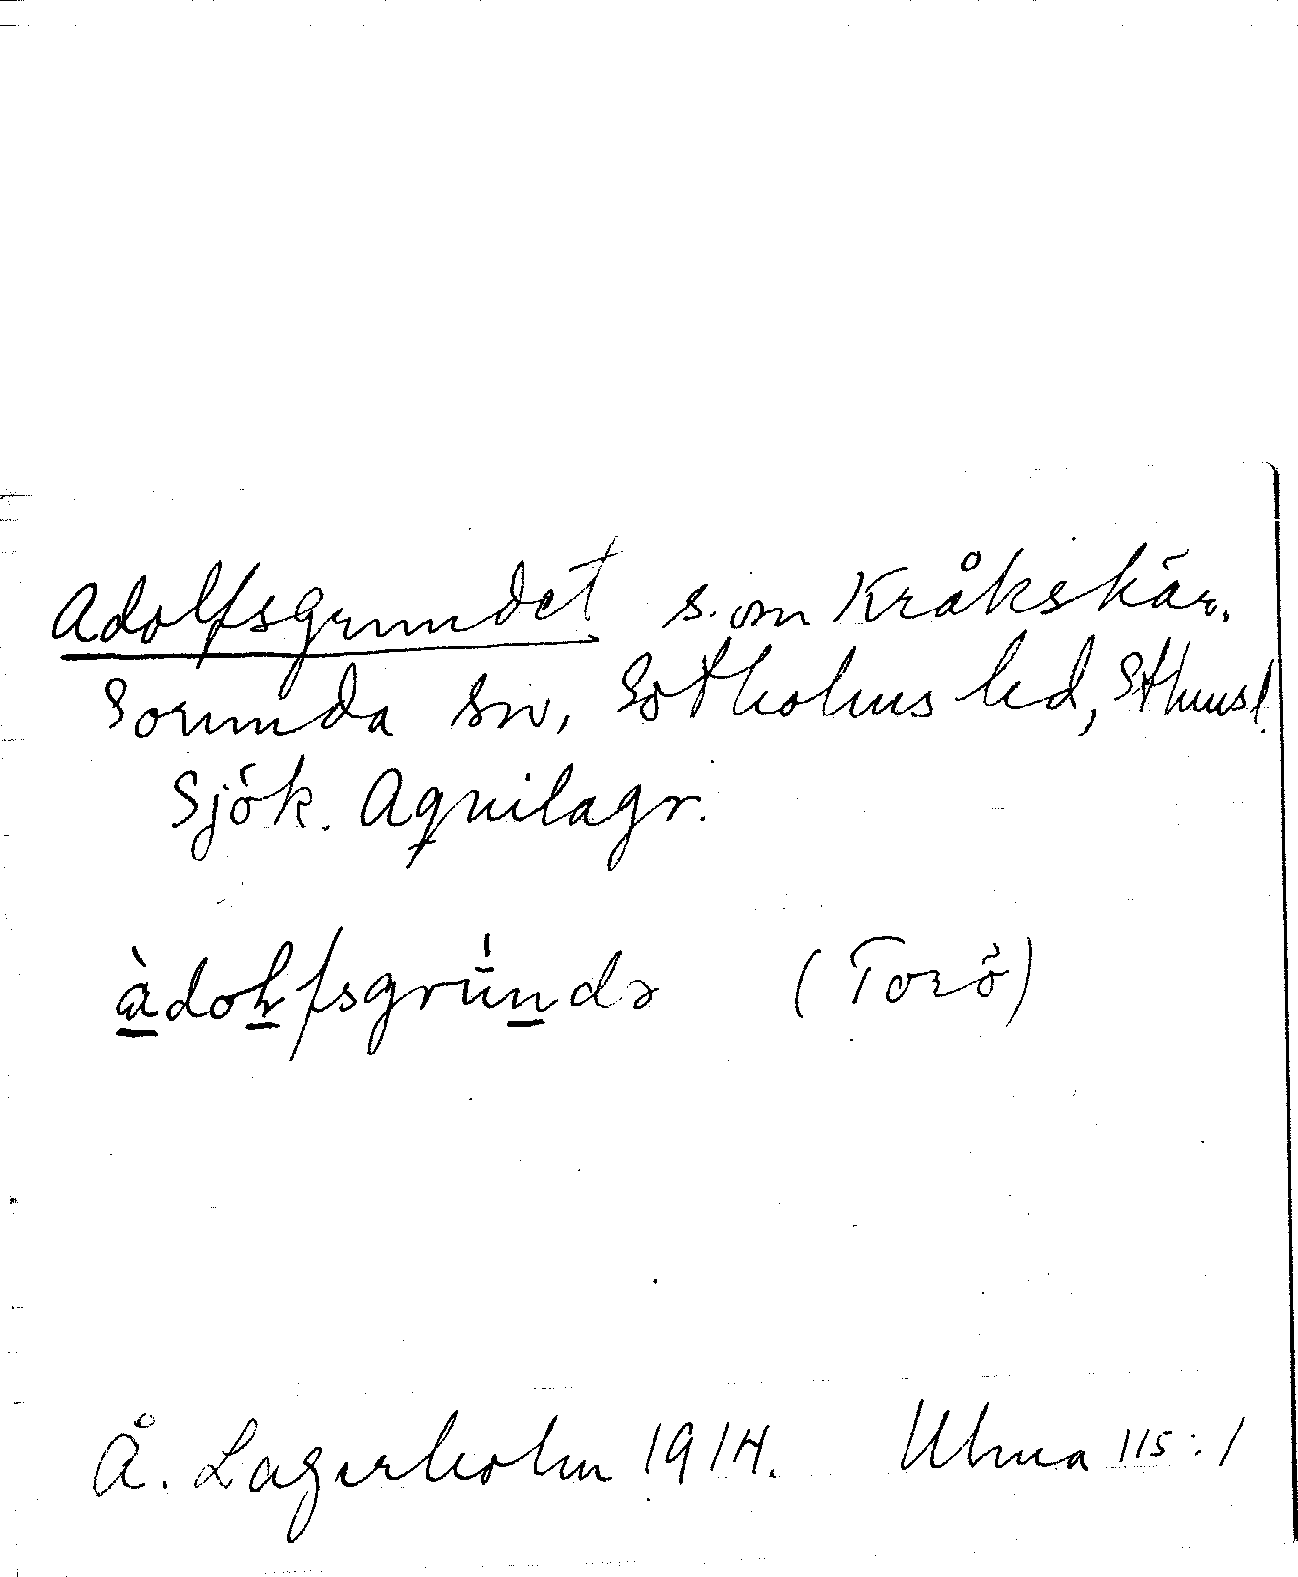 Adolfsgrundet s. om Kråkskär.
Sorunda sn, Sotholms hd, Sthmsl.
Sjök. Aquilagr.
àdoḻfsgrún̲də (Torö)
Å. Lagerholm 1914. Ulma 115:1